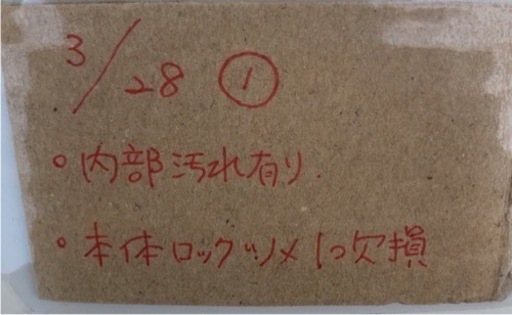 3/28 ①
。内部汚れ有り.
。本体ロックツメ1つ欠損